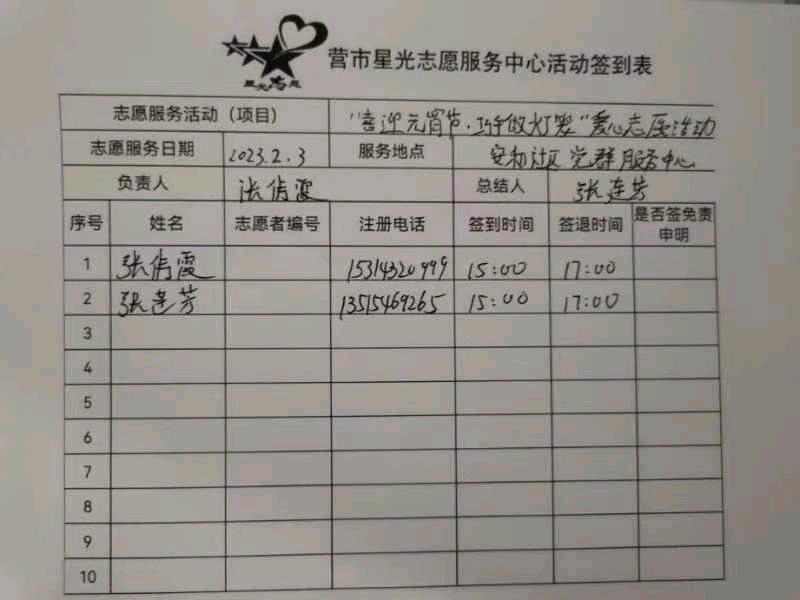 营市星光志愿服务中心活动签到表
志愿服务活动（项目） "喜迎元宵节·巧手做灯笼"爱心志愿活动
志愿服务日期 2023.2.3 服务地点 安和社区党群服务中心
负责人 张倩霞 总结人 张莲芳
序号 姓名 志愿者编号 注册电话 签到时间 签退时间 是否签免责申明
1 张倩霞 15314320999 15:00 17:00
2 张莲芳 13515469265 15:00 17:00
3
4
5
6
7
8
9
10